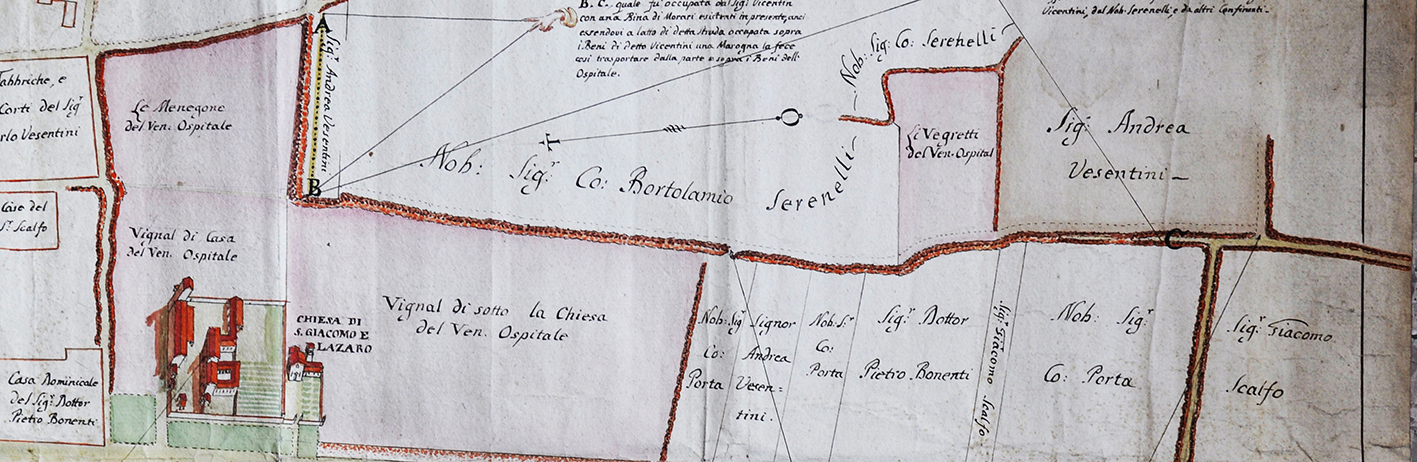 B. C. quale fu' occupata dal Sig.r Vicentin
con una Rina di Morari esistenti in presente, anci
essendovi a latto di detta struda occupata sopra
i Beni di detto Vicentini una Marogna la fece
così trasportare dalla parte e sopra i Beni dell'
Ospitale.
Vicentini, dal Nob. Serenelli, e da altri Confinanti.
A
Sig.r Andrea Vesentini
B
Fabbriche, e
Corti del Sig.r
rlo Vesentini
Le Menegone
del Ven. Ospitale
Case del
S.r Scalfo
Vignal di Casa
del Ven. Ospitale
Casa Dominicale
del Sig.r Dottor
Pietro Bonenti
CHIESA DI
S. GIACOMO E
LAZARO
Vignal di sotto la Chiesa
del Ven. Ospitale
Nob: Sig.r Co: Bortolamio Serenelli
Nob: Sig: Co: Serenelli
Li Vegretti
del Ven. Ospital
Sig.r Andrea
Vesentini
C
Nob: Sig.r
Co:
Porta
Signor
Andrea
Vesen=
tini.
Nob: S.r
Co:
Porta
Sig.r Dottor
Pietro Bonenti
Sig.r Giacomo Scalfo
Nob: Sig.r
Co: Porta
Sig.r Giacomo
Scalfo